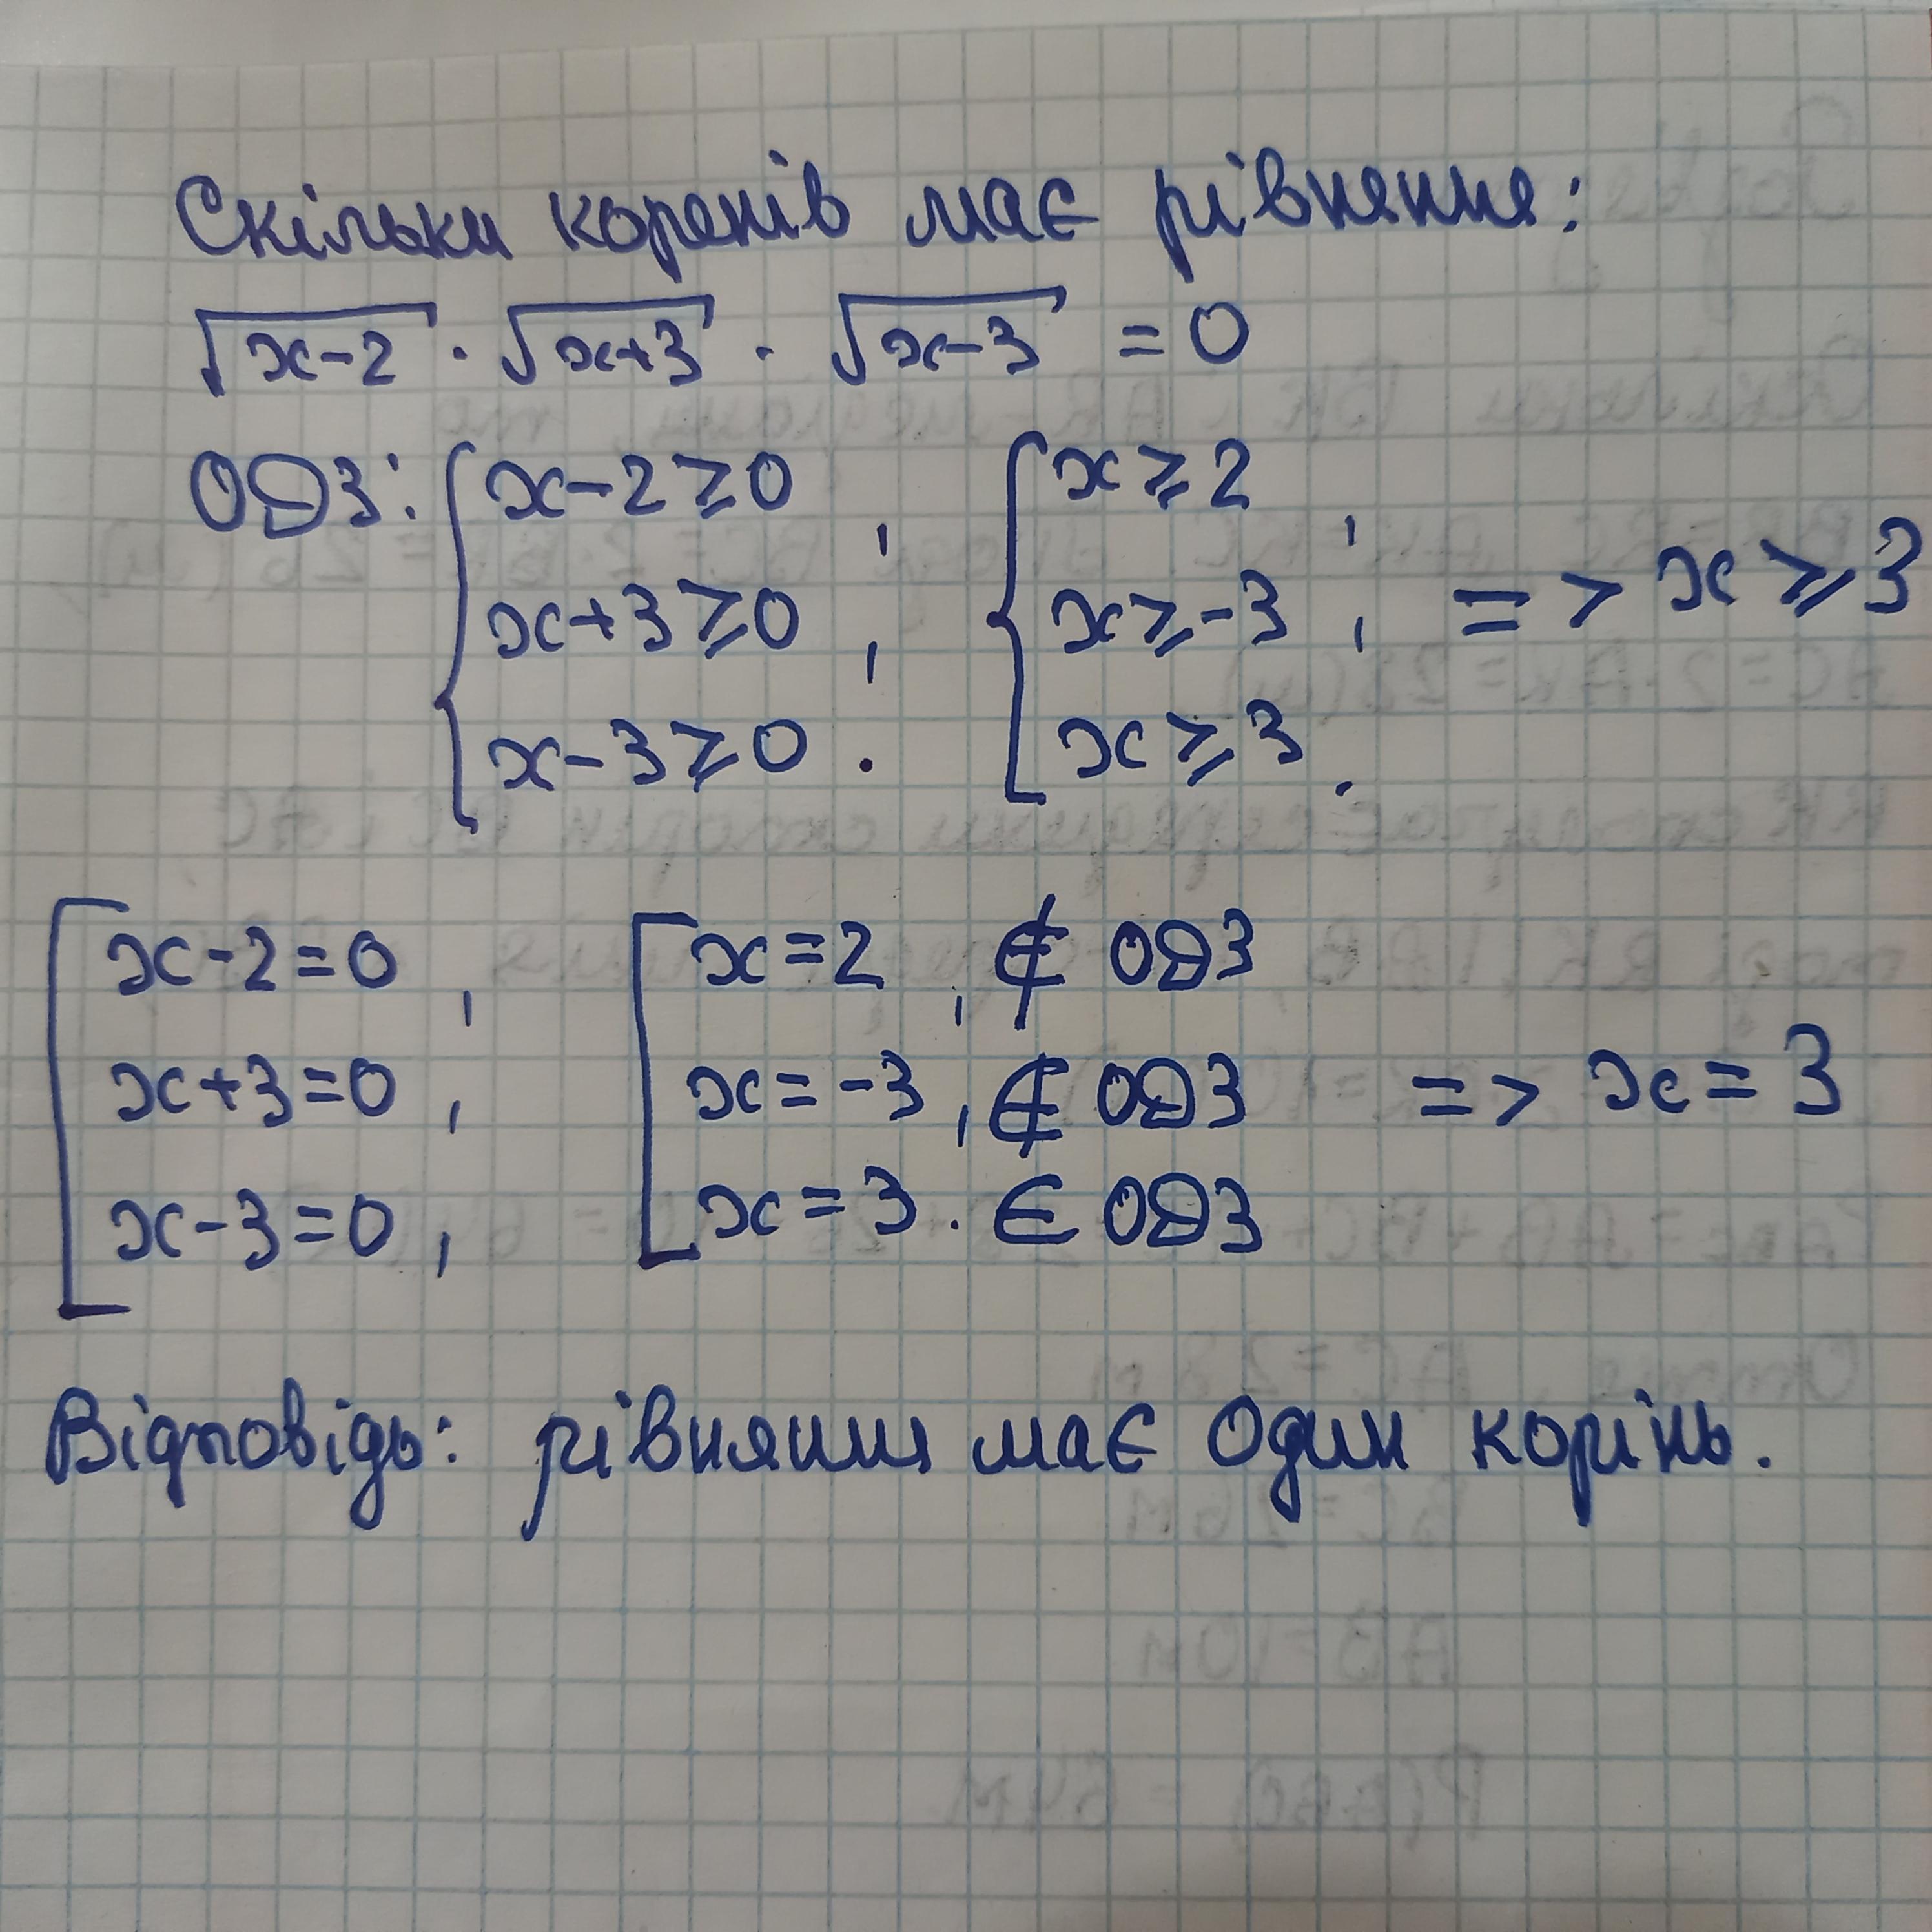 Скільки коренів має рівняння:
√x-2 · √x+3 · √x-3 = 0
ОДЗ: { x-2≥0, { x≥2,
x+3≥0, x≥-3, => x≥3
x-3≥0. x≥3.
[ x-2=0, [ x=2, ∉ ОДЗ
x+3=0, x=-3, ∉ ОДЗ => x=3
x-3=0, x=3. ∈ ОДЗ
Відповідь: рівняння має один корінь.